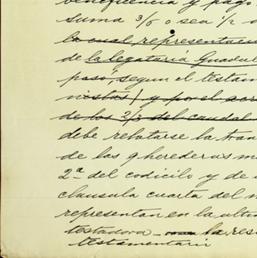 beneficencia y pago
suma 3/6 o sea 1/2
la cual representacion
de la legataria Guadalu
pasó, segun el testam
y por el acre
de los 2/3 del caudal
debe relatarse la tran
de las 9 herederas
2ª del codicilo y de
clausula cuarta del
representan en la ultim
testadora la res
testamentari